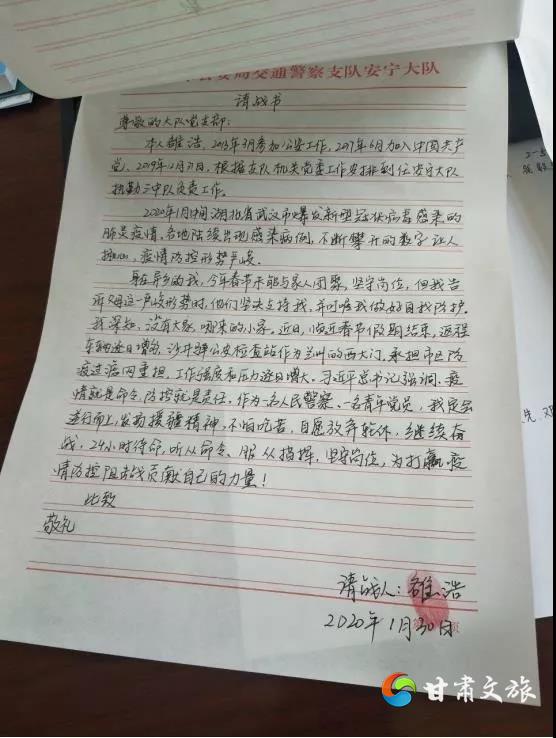 公安局交通警察支队安宁大队
请战书
尊敬的大队党支部:
本人雒浩,2013年3月参加公安工作,2017年6月加入中国共产
党、2019年12月31日,根据支队机关党委工作安排到任安宁大队
执勤三中队负责工作。
2020年1月中旬湖北省武汉市爆发新型冠状病毒感染的
肺炎疫情、各地陆续出现感染病例,不断攀升的数字让人
担心,疫情防控形势严峻。
身在异乡的我,今年春节未能与家人团聚,坚守岗位,但我告
诉父母这一严峻形势时,他们坚决支持我,并叮嘱我做好自我防护。
我深知,没有大家,哪来的小家。近日,临近春节假期结束,返程
车辆逐日增多,沙井驿公安检查站作为兰州的西大门,承担市区防
疫过滤内重担,工作强度和压力逐日增大。习近平总书记强调:疫
情就是命令,防控就是责任,作为一名人民警察、一名青年党员,我定会
逆行而上,发扬援疆精神,不怕吃苦,自愿放弃轮休,继续奋
战,24小时待命,听从命令、服从指挥,坚守岗位,为打赢疫
情防控阻击战贡献自己的力量!
此致
敬礼
请战人:雒浩
2020年1月30日
甘肃文旅